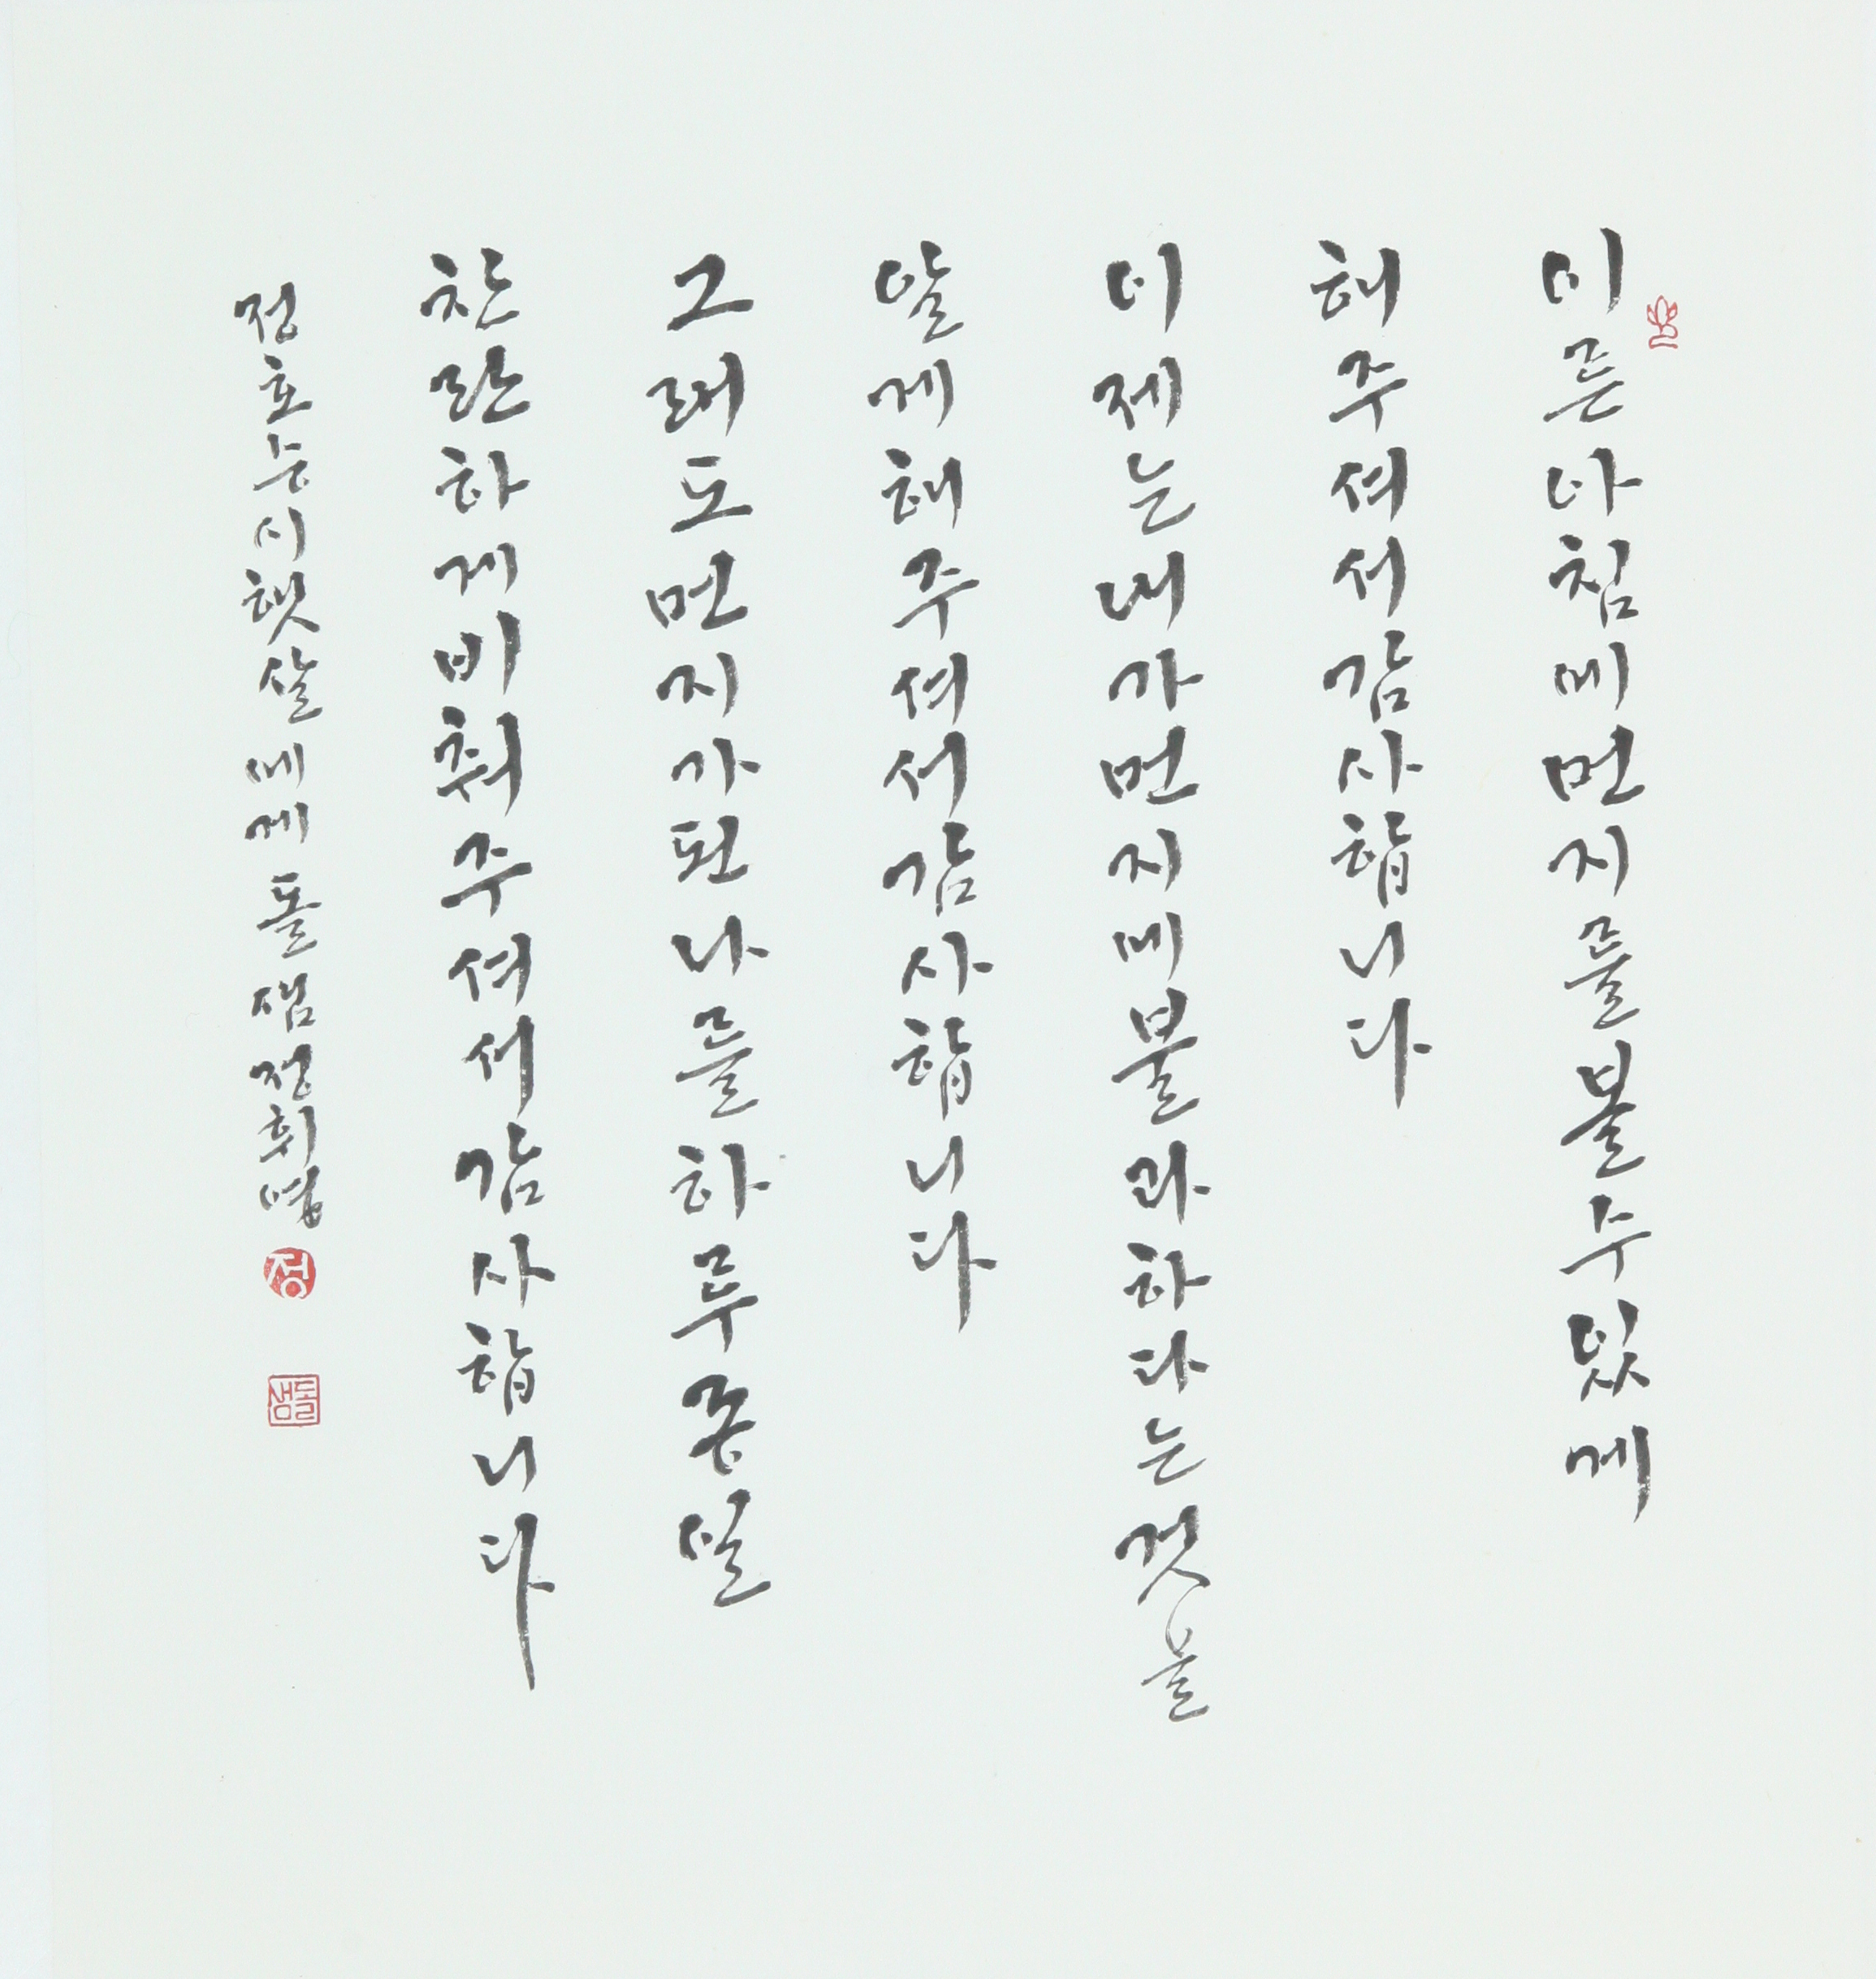 이른아침에먼지를볼수있게
해주셔서감사합니다
이제는내가먼지에불과하다는것을
알게해주셔서감사합니다
그래도먼지가된나를하루종일
찬란하게비춰주셔서감사합니다
정호승시햇살에게돌샘정희
정
돌샘